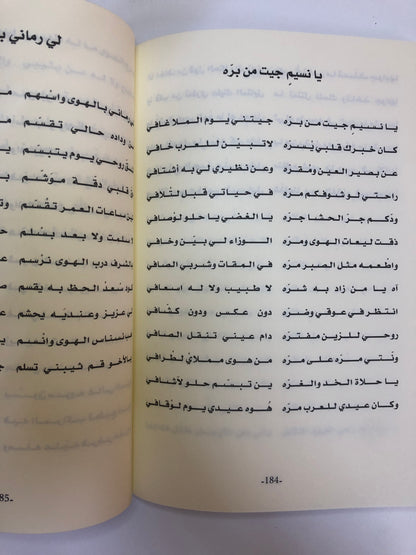 يا نسيمٍ جيت من برّه
يا نسيم جيت من بره جيتني يوم الملا غافي
كان خبرك قلبي يسره لا تبيّن للعرب خافي
عن بصير العين ومقره وعن نظيري لي به أشتافي
راحتي لو شوفكم مرّه في حياتي قبل لتلافي
ودكم جز الحشا جزه يا الغضي يا حلو لوصافي
ذقت ليعات الهوى ومره الوزاء لي بيّن وخافي
واطعمه مثل الصبر مرّه في المقات وشربي الصافي
آه يا من زاد به شره لا طبيب ولا له اسعافي
انتظر في عوقي وضره دون عكس ودون كشافي
روحي للزين مفتره دام عيني تنقل الصافي
ونتي مره على مره من هوى مملاي لطرافي
يا حلاة الخد والغره ين تبسّم حلو لأشنافي
وكان عيدي للعرب مره هوه عيدي يوم لوقافي
-184-
لي رماني
ني رماني بالهوى واسهم
من وداده حالي تقسّم
روحي يوم يتبسّم
قلبي دقة موشّم
من ساعات العمر تقسّم
سلمت ولا بعد بسلم
درب الهوى نرسم
سعد الحظ به يقسم
عزيز وعنديه يحشم
نسناس الهوى وانسم
قم شيبني تسلم
85-